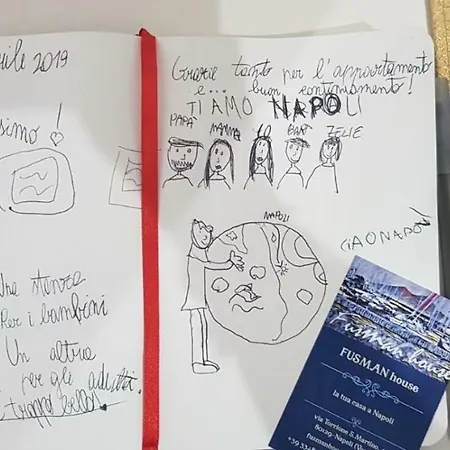 rile 2019
simo!
Una stanza
Per i bambini
Un altra
per gli adulti.
troppo bello
Grazie tanto per l'appartamento
e... buon continuamento!
TI AMO NAPOLI
PAPÀ
MAMMA
IO
ZELIE
NAPOLI
CIAO NAPOLI
Fusman house
FUSMAN house
la tua casa a Napoli
via Torrione S.Martino,
80129-Napoli
+39 33